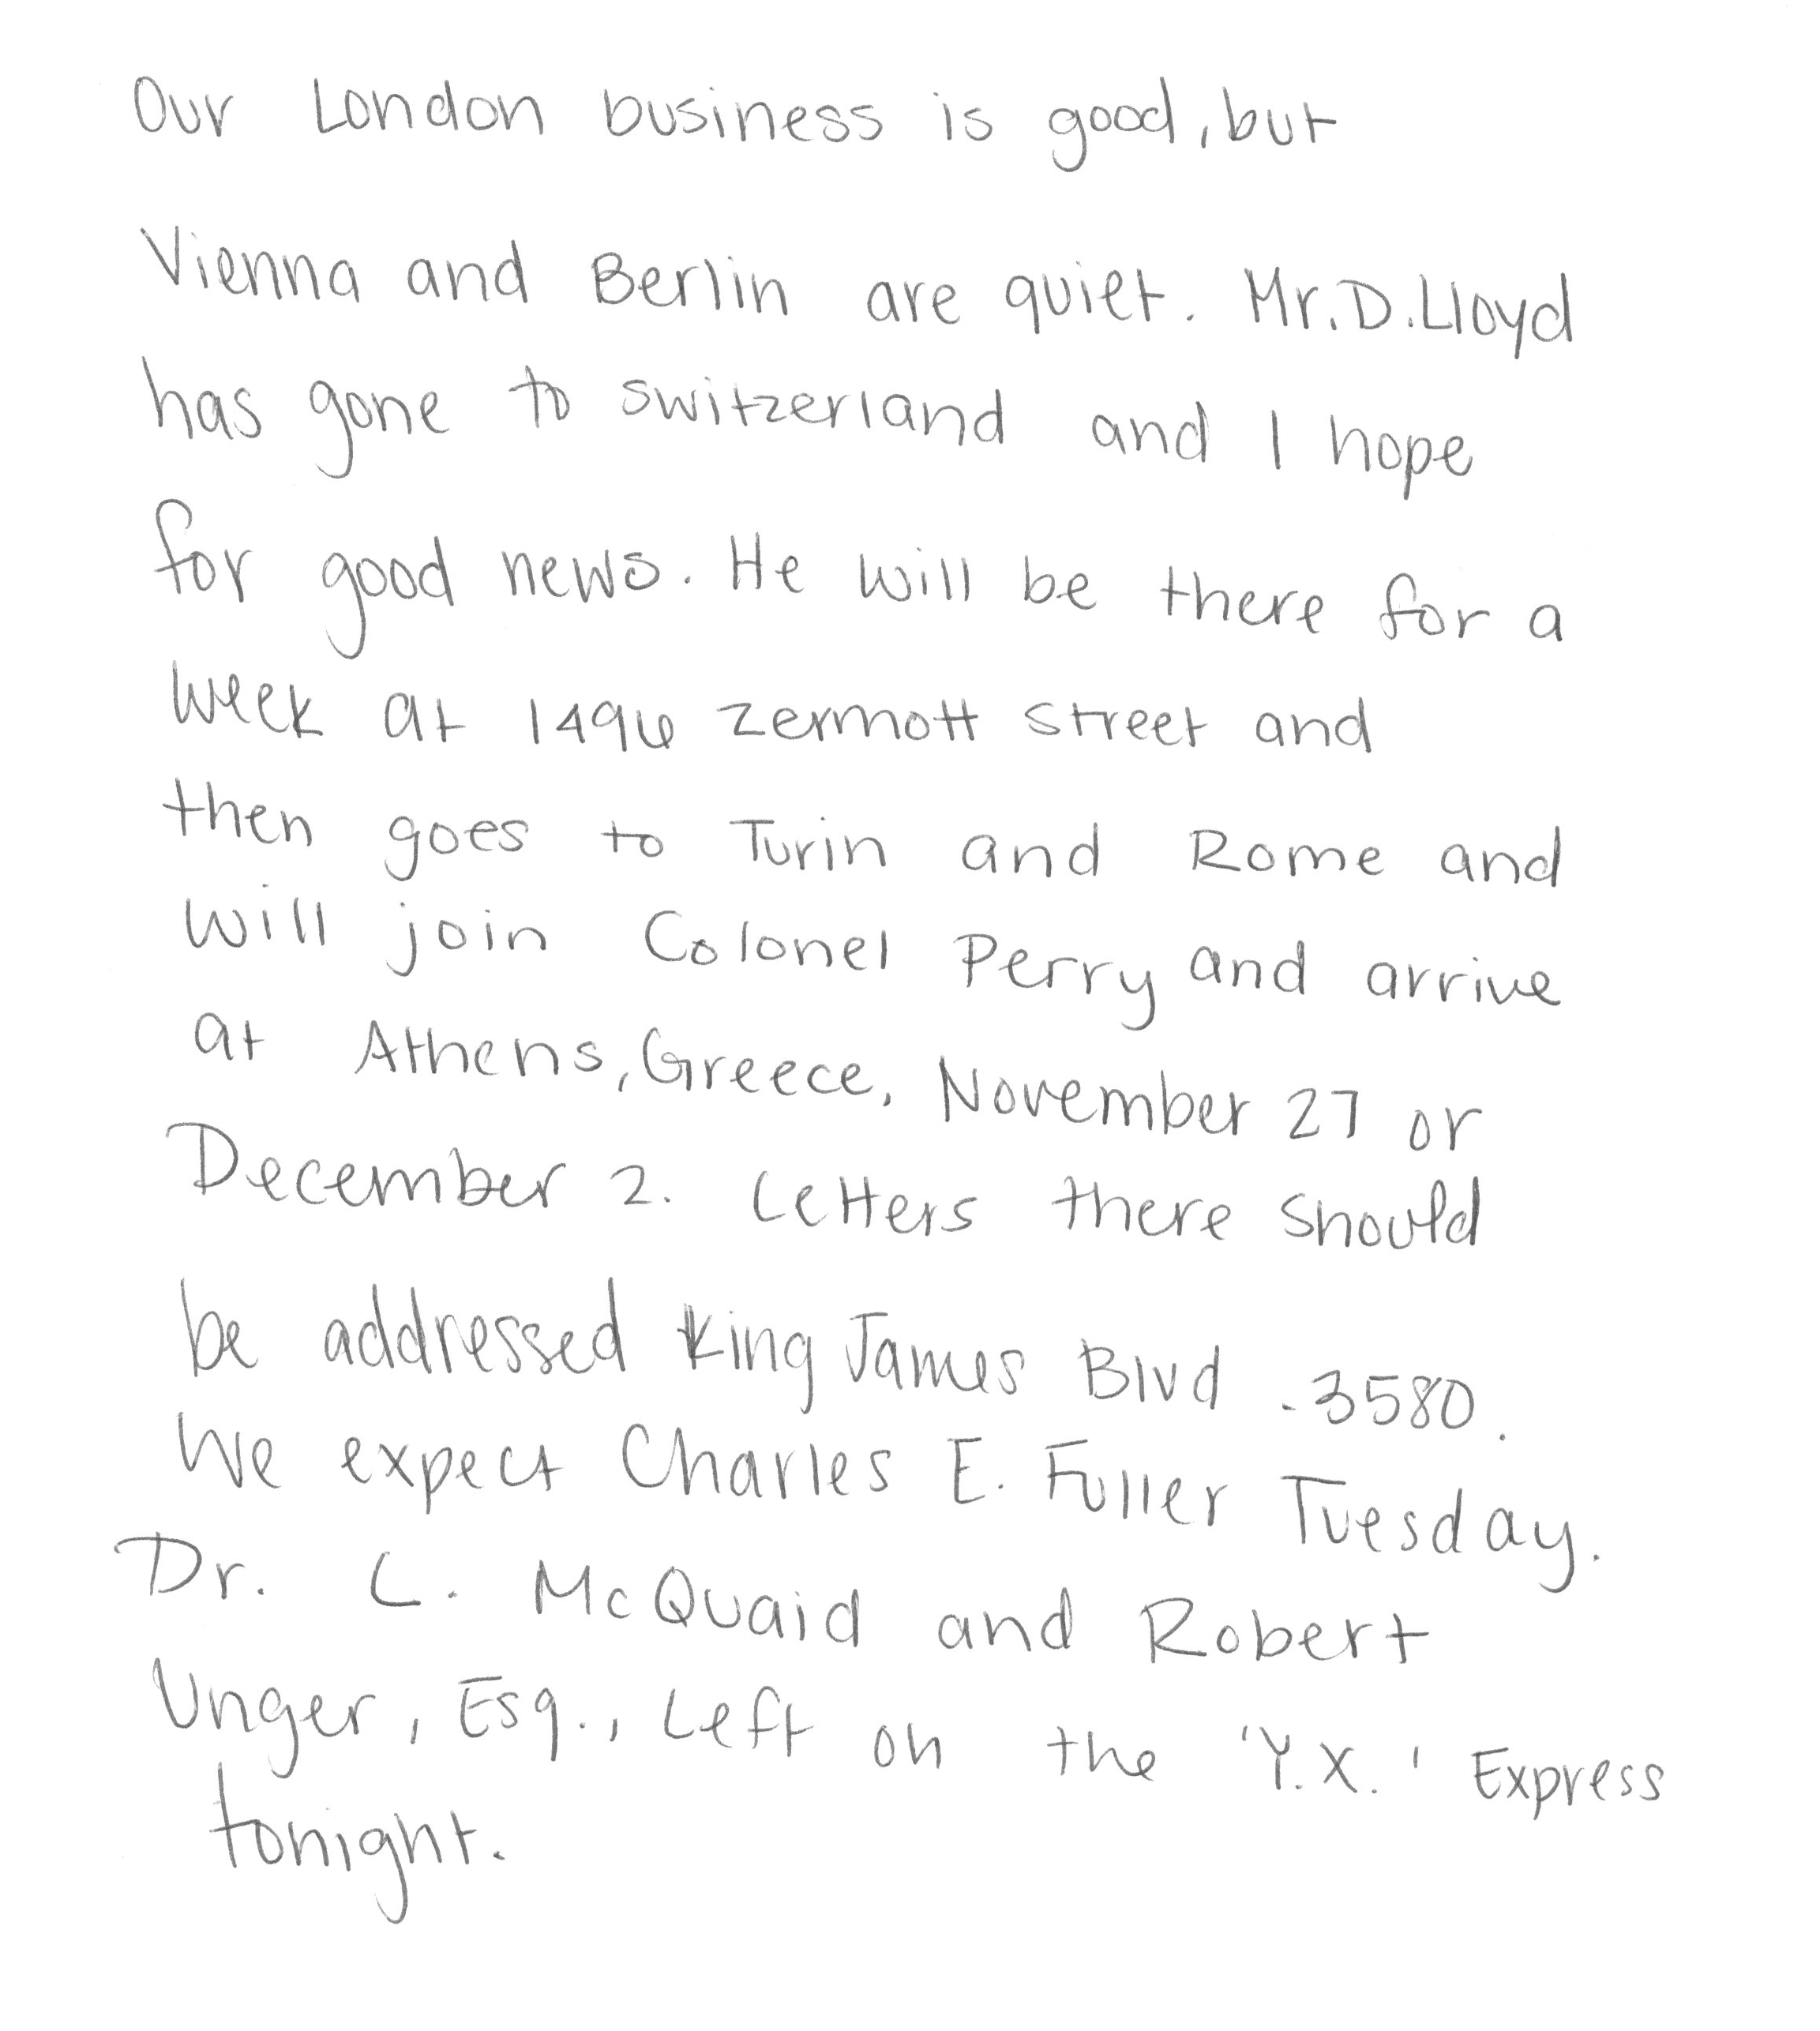 Our London business is good, but
Vienna and Berlin are quiet. Mr. D. Lloyd
has gone to switzerland and I hope
for good news. He will be there for a
week at 1496 zermott street and
then goes to Turin and Rome and
will join Colonel Perry and arrive
at Athens, Greece, November 27 or
December 2. Letters there should
be addressed King James Blvd . 3580.
We expect Charles E. Fuller Tuesday.
Dr. L. McQuaid and Robert
Unger, Esq., Left on the 'Y.X.' Express
tonight.